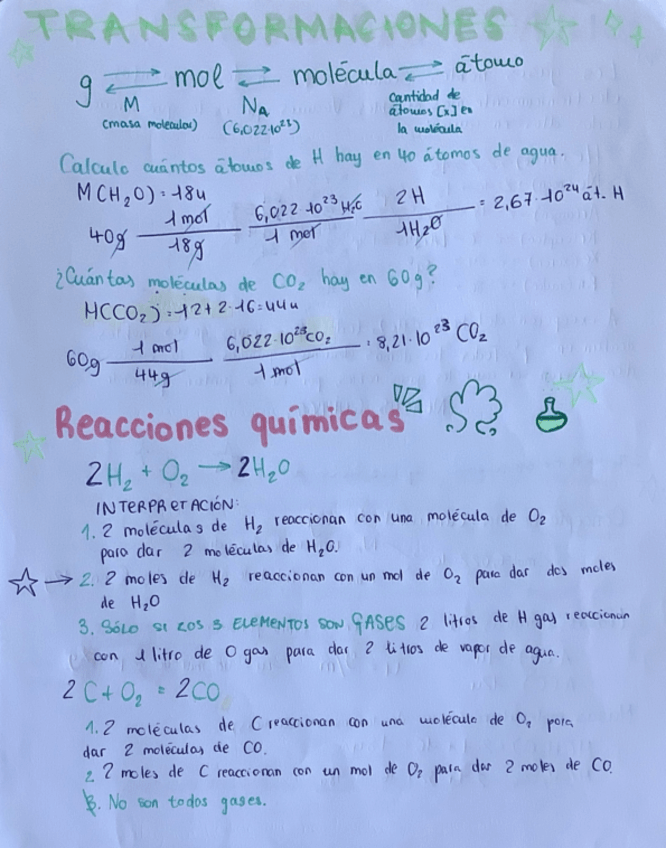 TRANSFORMACIONES
g ⇄ mol ⇄ molécula ⇄ átomo
M NA cantidad de
(masa molecular) (6,022·10²³) átomos [x] en
la molécula
Calculo cuántos átomos de H hay en 40 átomos de agua.
M(CH₂O) = 18u
40g 1 mol / 18g 6,022·10²³ H₂O / 1 mol 2H / 1H₂O = 2,67·10²⁴ át. H
¿Cuántas moléculas de CO₂ hay en 60g?
M(CO₂) = 12 + 2·16 = 44u
60g 1 mol / 44g 6,022·10²³ CO₂ / 1 mol = 8,21·10²³ CO₂
Reacciones químicas
2H₂ + O₂ → 2H₂O
INTERPRETACIÓN:
1. 2 moléculas de H₂ reaccionan con una molécula de O₂
para dar 2 moléculas de H₂O.
→ 2. 2 moles de H₂ reaccionan con un mol de O₂ para dar dos moles
de H₂O
3. SÓLO SI LOS 3 ELEMENTOS SON GASES 2 litros de H gas reaccionan
con 1 litro de O gas para dar 2 litros de vapor de agua.
2C + O₂ = 2CO
1. 2 moléculas de C reaccionan con una molécula de O₂ para
dar 2 moléculas de CO.
2 2 moles de C reaccionan con un mol de O₂ para dar 2 moles de CO.
3. No son todos gases.